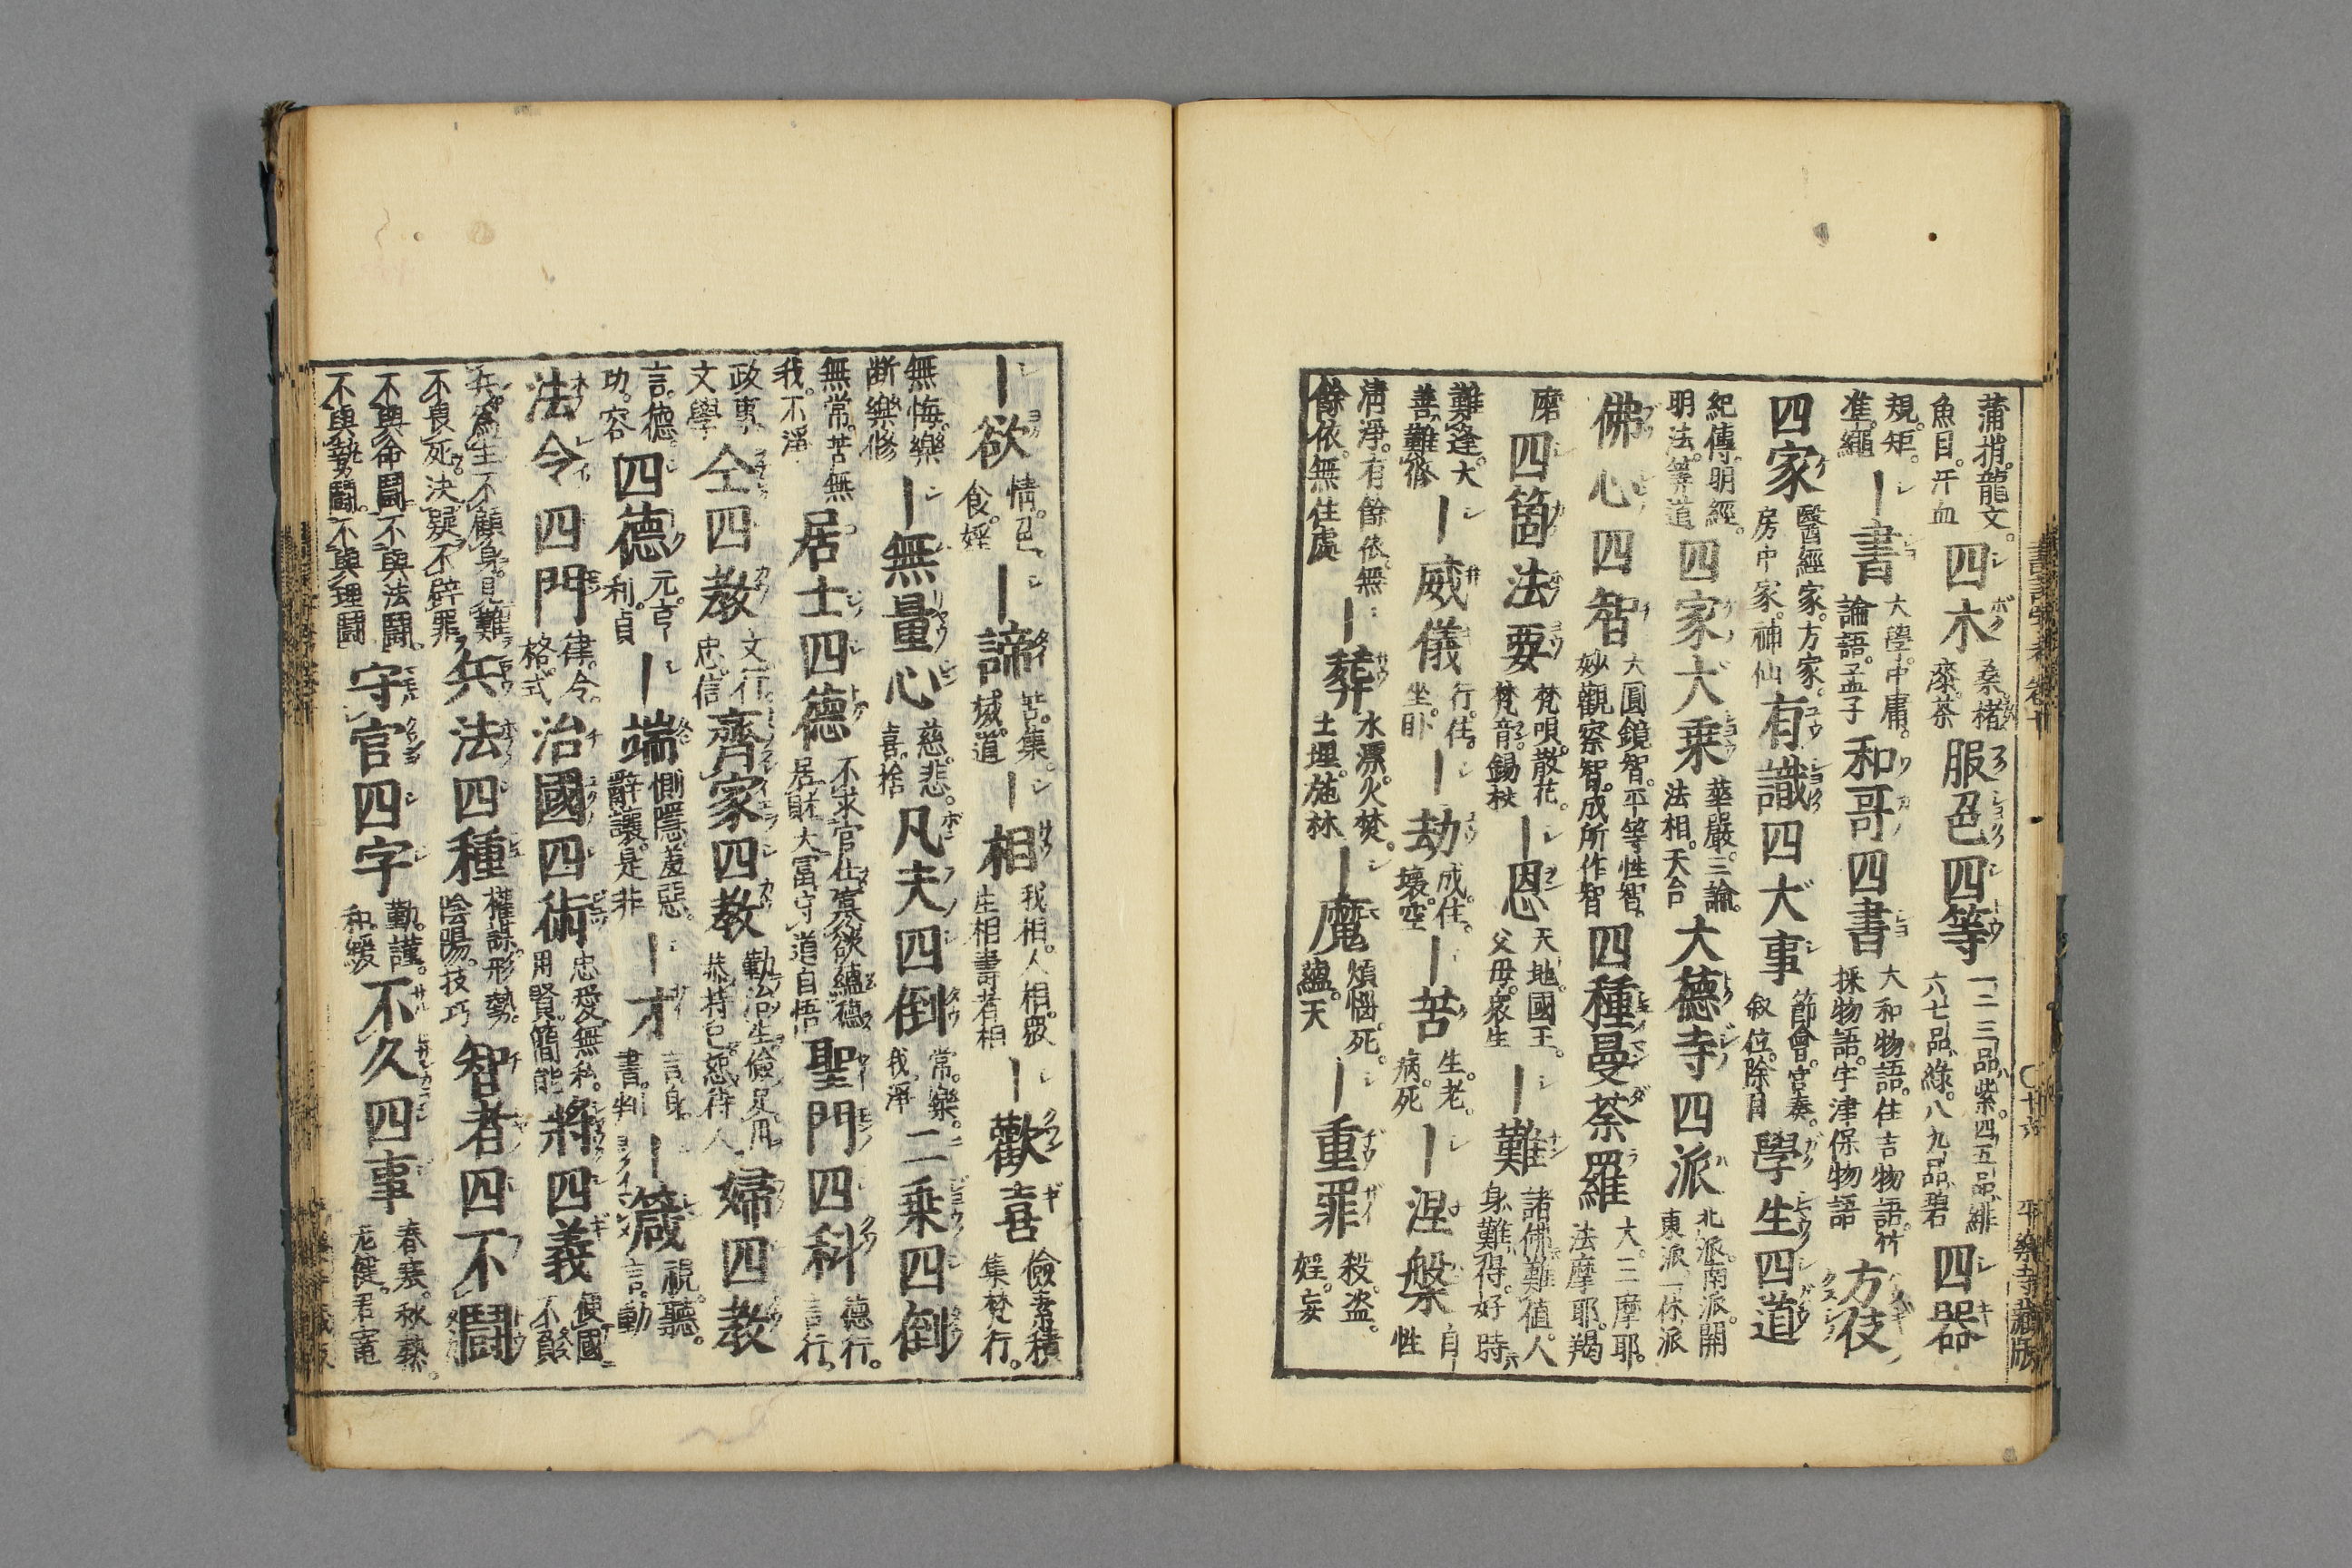 蒲梢。龍文。魚目。汗血 四木 桑。楮。漆。茶 服色四等 一二三品紫。四五品緋六七品綠。八九品碧 四器
規。矩。準。繩 ｜書 大學。中庸。論語。孟子 和哥四書 大和物語。住吉物語。竹採物語。宇津保物語 方伎
四家 醫經家。方家。房中家。神仙 有識四大事 節會。官奏。叙位。除目 學生四道
紀傳。明經。明法。筭道 四家大乗 華嚴。三論。法相。天台 大德寺四派 北派。南派。開東派一休派
佛心四智 大圓鏡智。平等性智。妙觀察智。成所作智 四種曼荼羅 大。三摩耶。法摩耶。羯
磨 四箇法要 梵唄。散花。梵音。錫杖 ｜恩 天地。國王。父母。衆生 ｜難 諸佛難値。人身難得。好時
難逢。大善難修 ｜威儀 行。住。坐。臥 ｜劫 成。住。壞。空 ｜苦 生。老。病。死 ｜涅槃 自性
清淨。有餘依。無餘依。無住處 ｜葬 水漂。火焚。土埋。施林 ｜魔 煩惱。死。蘊。天 ｜重罪 殺。盗。婬。妄
平樂寺藏版
｜欲 情。色。食。婬 ｜諦 苦。集。滅。道 ｜相 我相。人相。衆生相壽者相 ｜歡喜 儉素積集梵行。
無悔。樂断樂修 ｜無量心 慈。悲。喜。捨 凡夫四倒 常。樂。我。淨 二乗四倒
無常。苦無我。不淨 居士四德 不求官仕寡欲蘊德居財大富守道自悟 聖門四科 德行。言行。
政事文學 仝四教 文行。忠。信 齊家四教 勤治生儉足用恭持己恕待人 婦四教
言。德。功。容 四德 元。亨利。貞 ｜端 惻隱。羞惡。辭讓。是非 ｜才 言身。書。判 ｜箴 視。聽。言。動
法令四門 律。令。格。式 治國四術 忠愛無私。用賢。簡能 將四義 便國不負
兵為生不顧身。見難不畏死。決疑不辟罪 兵法四種 權謀。形勢。陰陽。技巧 智者四不鬪
不與命鬪不與法鬪。不與勢鬪。不與理鬪 守官四字 勤。謹。和。緩 不久四事 春寒。秋熱。老健。君寵